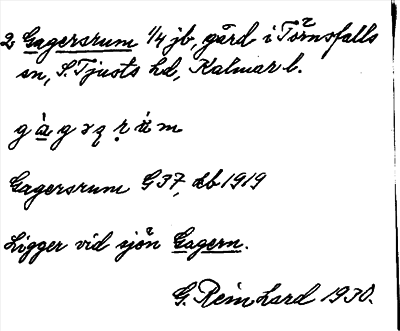 2 Gagersrum 1/4 jb, gård i Törnsfalls
sn, S. Tjusts hd, Kalmar l.
Gagersrum G37, Eb 1919
Ligger vid sjön Gagern.
G. Reinhard 1930.